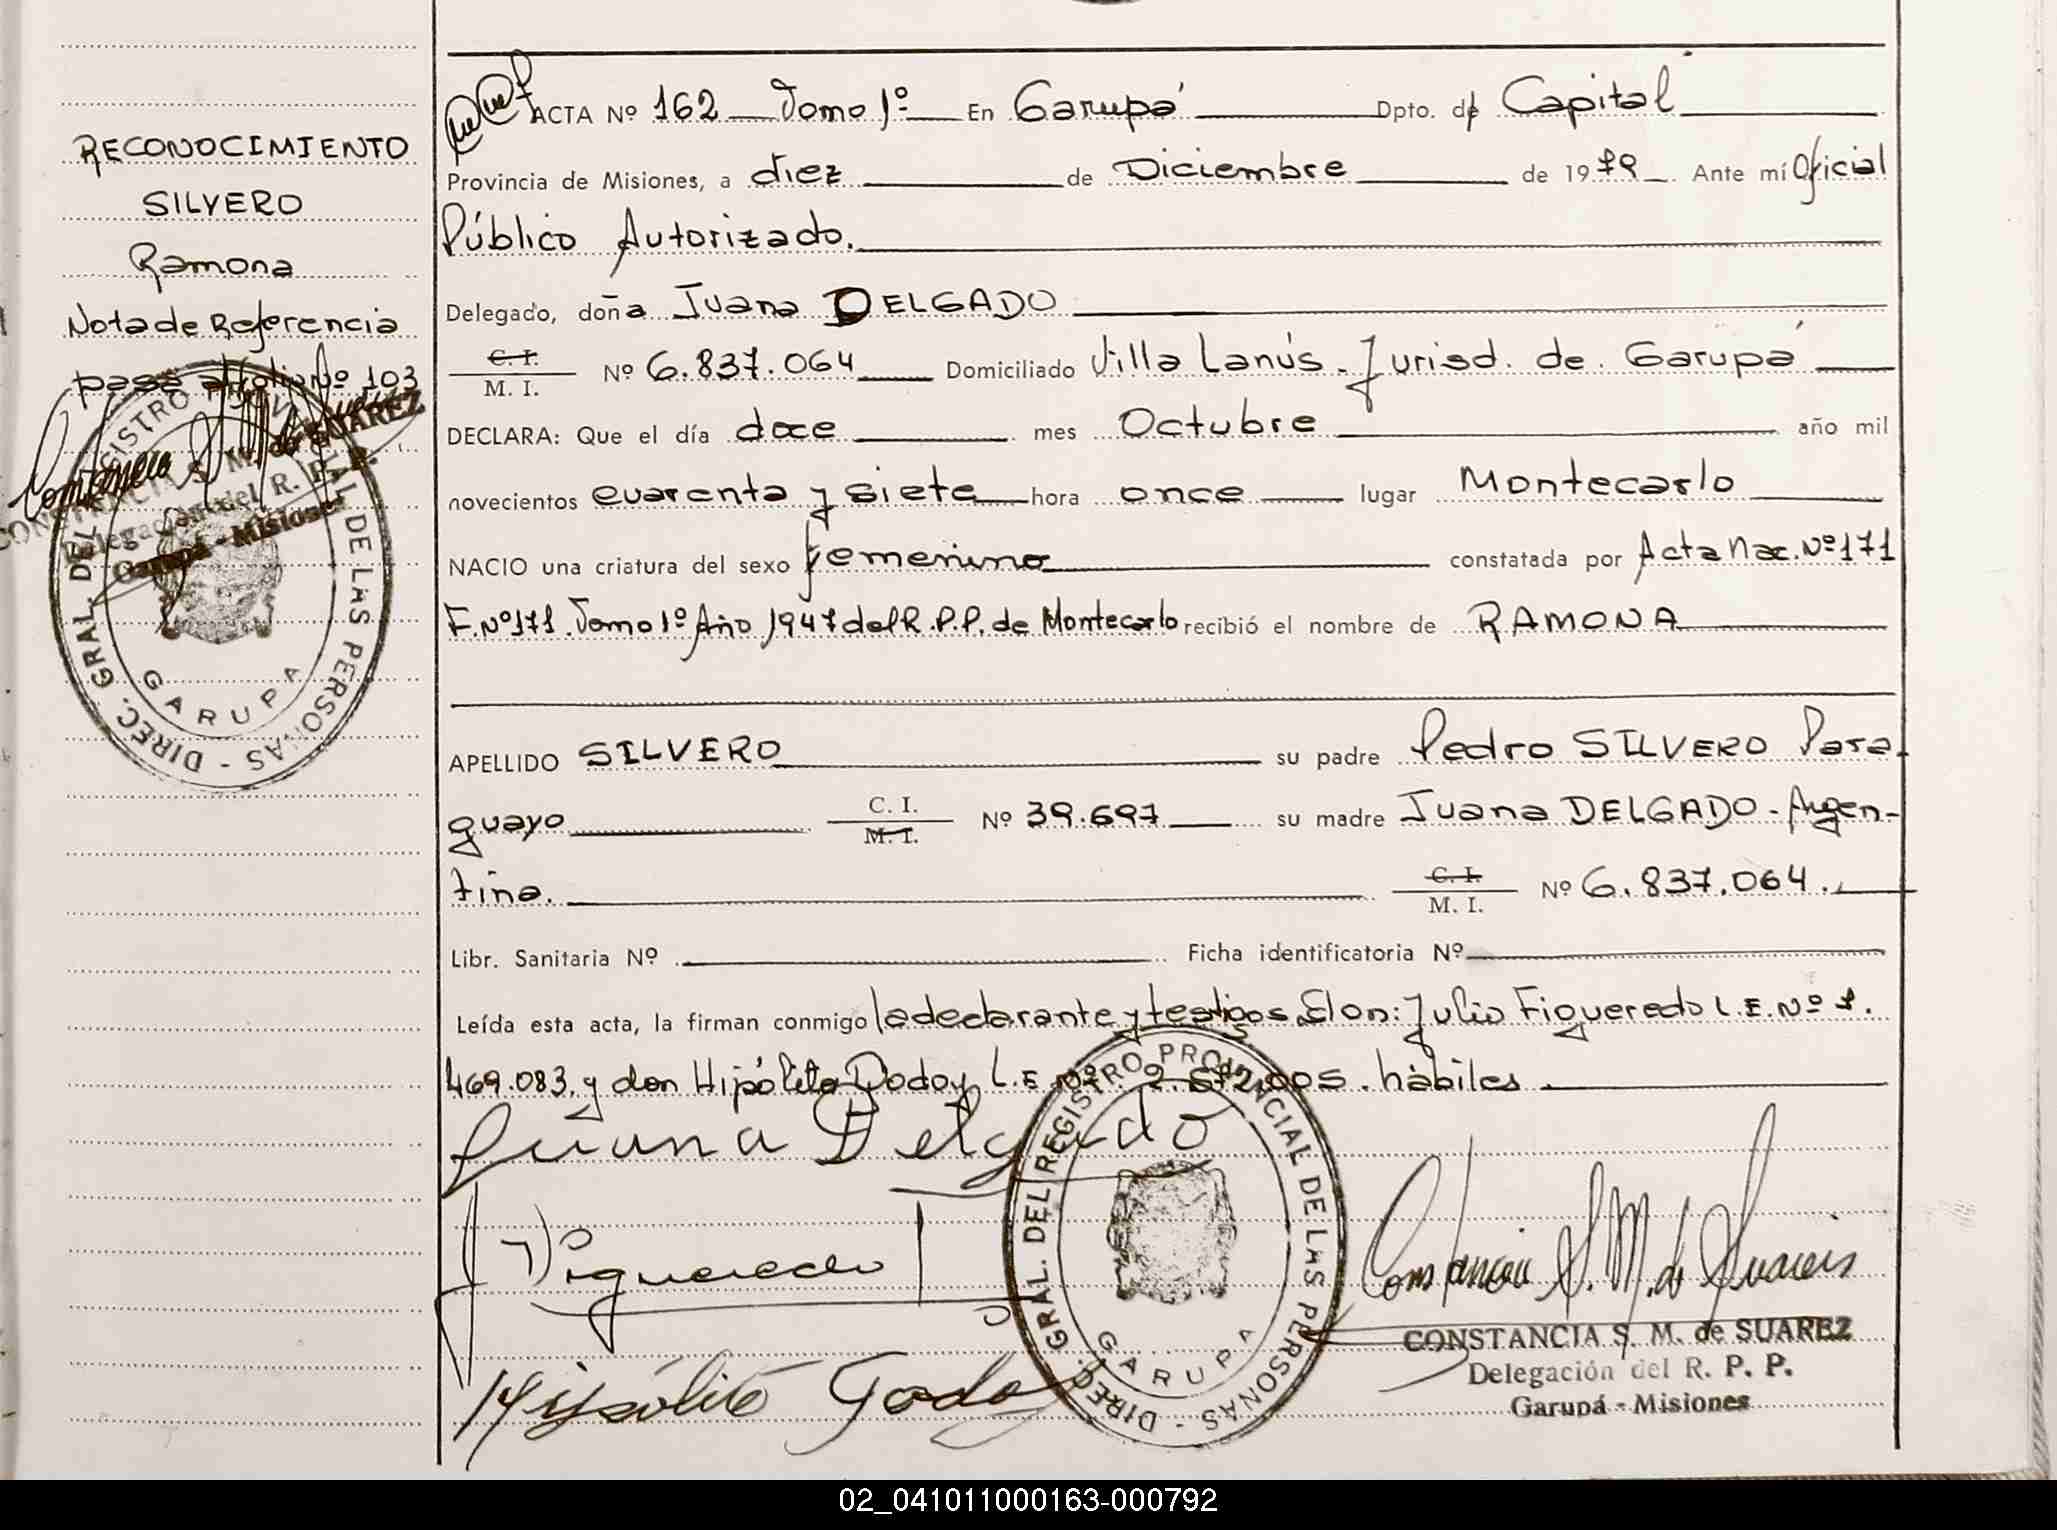 RECONOCIMIENTO
SILVERO
Ramona
Nota de Referencia
pasa al folio Nº 103
CONSTANCIA S. M. de SUAREZ
Delegación del R. P. P.
Garupá - Misiones
DIREC. GRAL. DEL REGISTRO PROVINCIAL DE LAS PERSONAS -
GARUPA
ACTA Nº 162 Tomo 1º En Garupá Dpto. de Capital
Provincia de Misiones, a diez de Diciembre de 1979 Ante mí Oficial
Público Autorizado.
Delegado, doña Juana DELGADO
C. I.
M. I.
Nº 6.837.064 Domiciliado Villa Lanús - Jurisd. de Garupá
DECLARA: Que el día doce mes Octubre año mil
novecientos cuarenta y siete hora once lugar Montecarlo
NACIO una criatura del sexo femenino constatada por Acta Nac. Nº 171
F. Nº 171. Tomo 1º Año 1947 del R.P.P. de Montecarlo recibió el nombre de RAMONA
APELLIDO SILVERO su padre Pedro SILVERO Para
guayo C. I.
M. I.
Nº 39.697 su madre Juana DELGADO - Argen-
tina. C. I.
M. I.
Nº 6.837.064.
Libr. Sanitaria Nº Ficha identificatoria Nº
Leída esta acta, la firman conmigo la declarante y testigos Don: Julio Figueredo L.E. Nº 7.
469.083. y don Hipólito Godoy L.E Nº 2.572.005. hábiles
Juana Delgado
J Figueredo
Hipólito Godoy
Constancia S. M. de Suarez
DIREC. GRAL. DEL REGISTRO PROVINCIAL DE LAS PERSONAS -
GARUPA
CONSTANCIA S. M. de SUAREZ
Delegación del R. P. P.
Garupá - Misiones
02_041011000163-000792